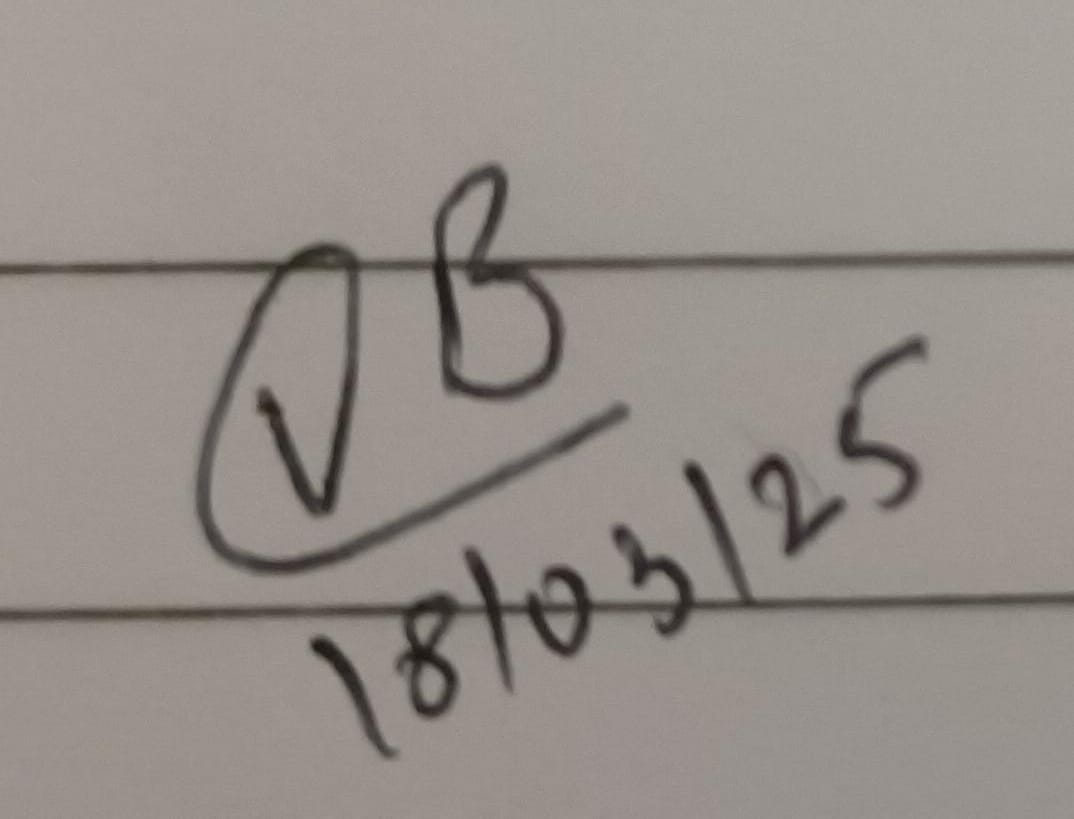 VB
18/03/25